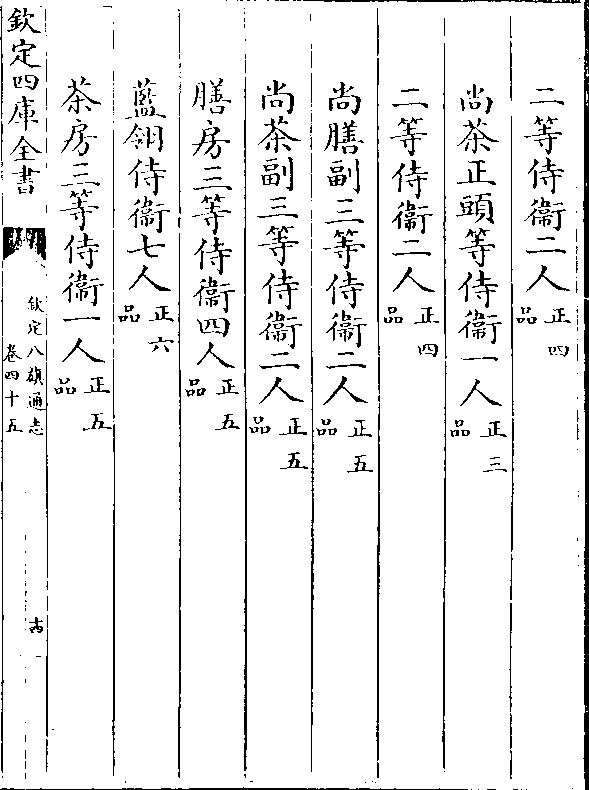 二等侍衞二人正四品
尚茶正頭等侍衞一人正三品
二等侍衞二人正四品
尚膳副三等侍衞二人正五品
尚茶副三等侍衞二人正五品
膳房三等侍衞四人正五品
藍翎侍衞七人正六品
茶房三等侍衞一人正五品
欽定四庫全書
欽定八旗通志
卷四十五
十四